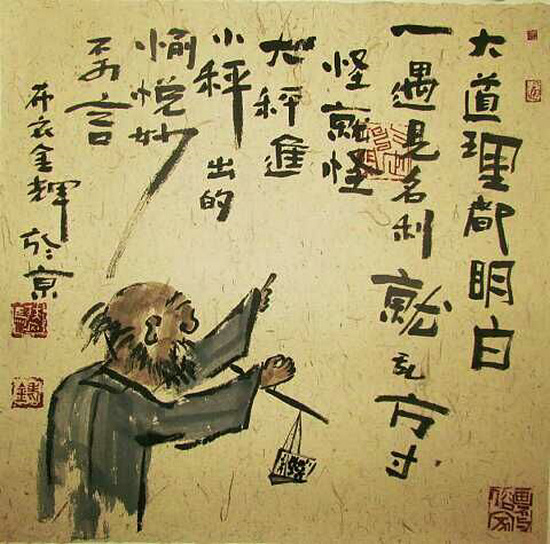 大道理都明白
一遇见名利就乱方寸
怪就怪
大秤進
小秤出的
愉悦妙
不可言
布衣金輝於京